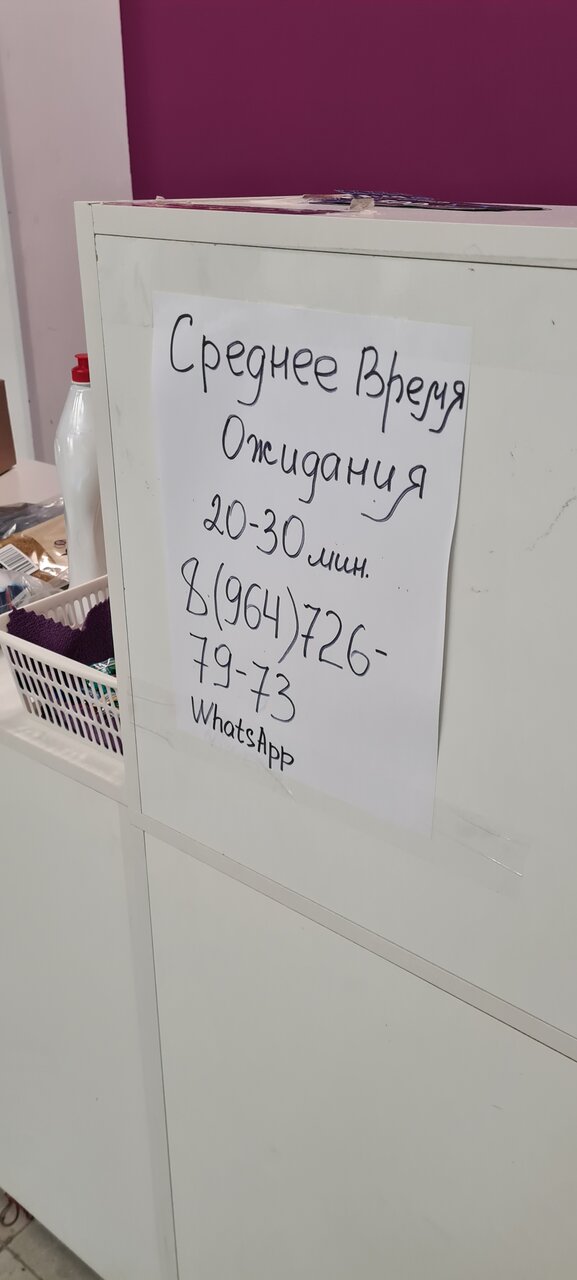 Среднее Время
Ожидания
20-30 мин.
8(964)726-
79-73
WhatsApp